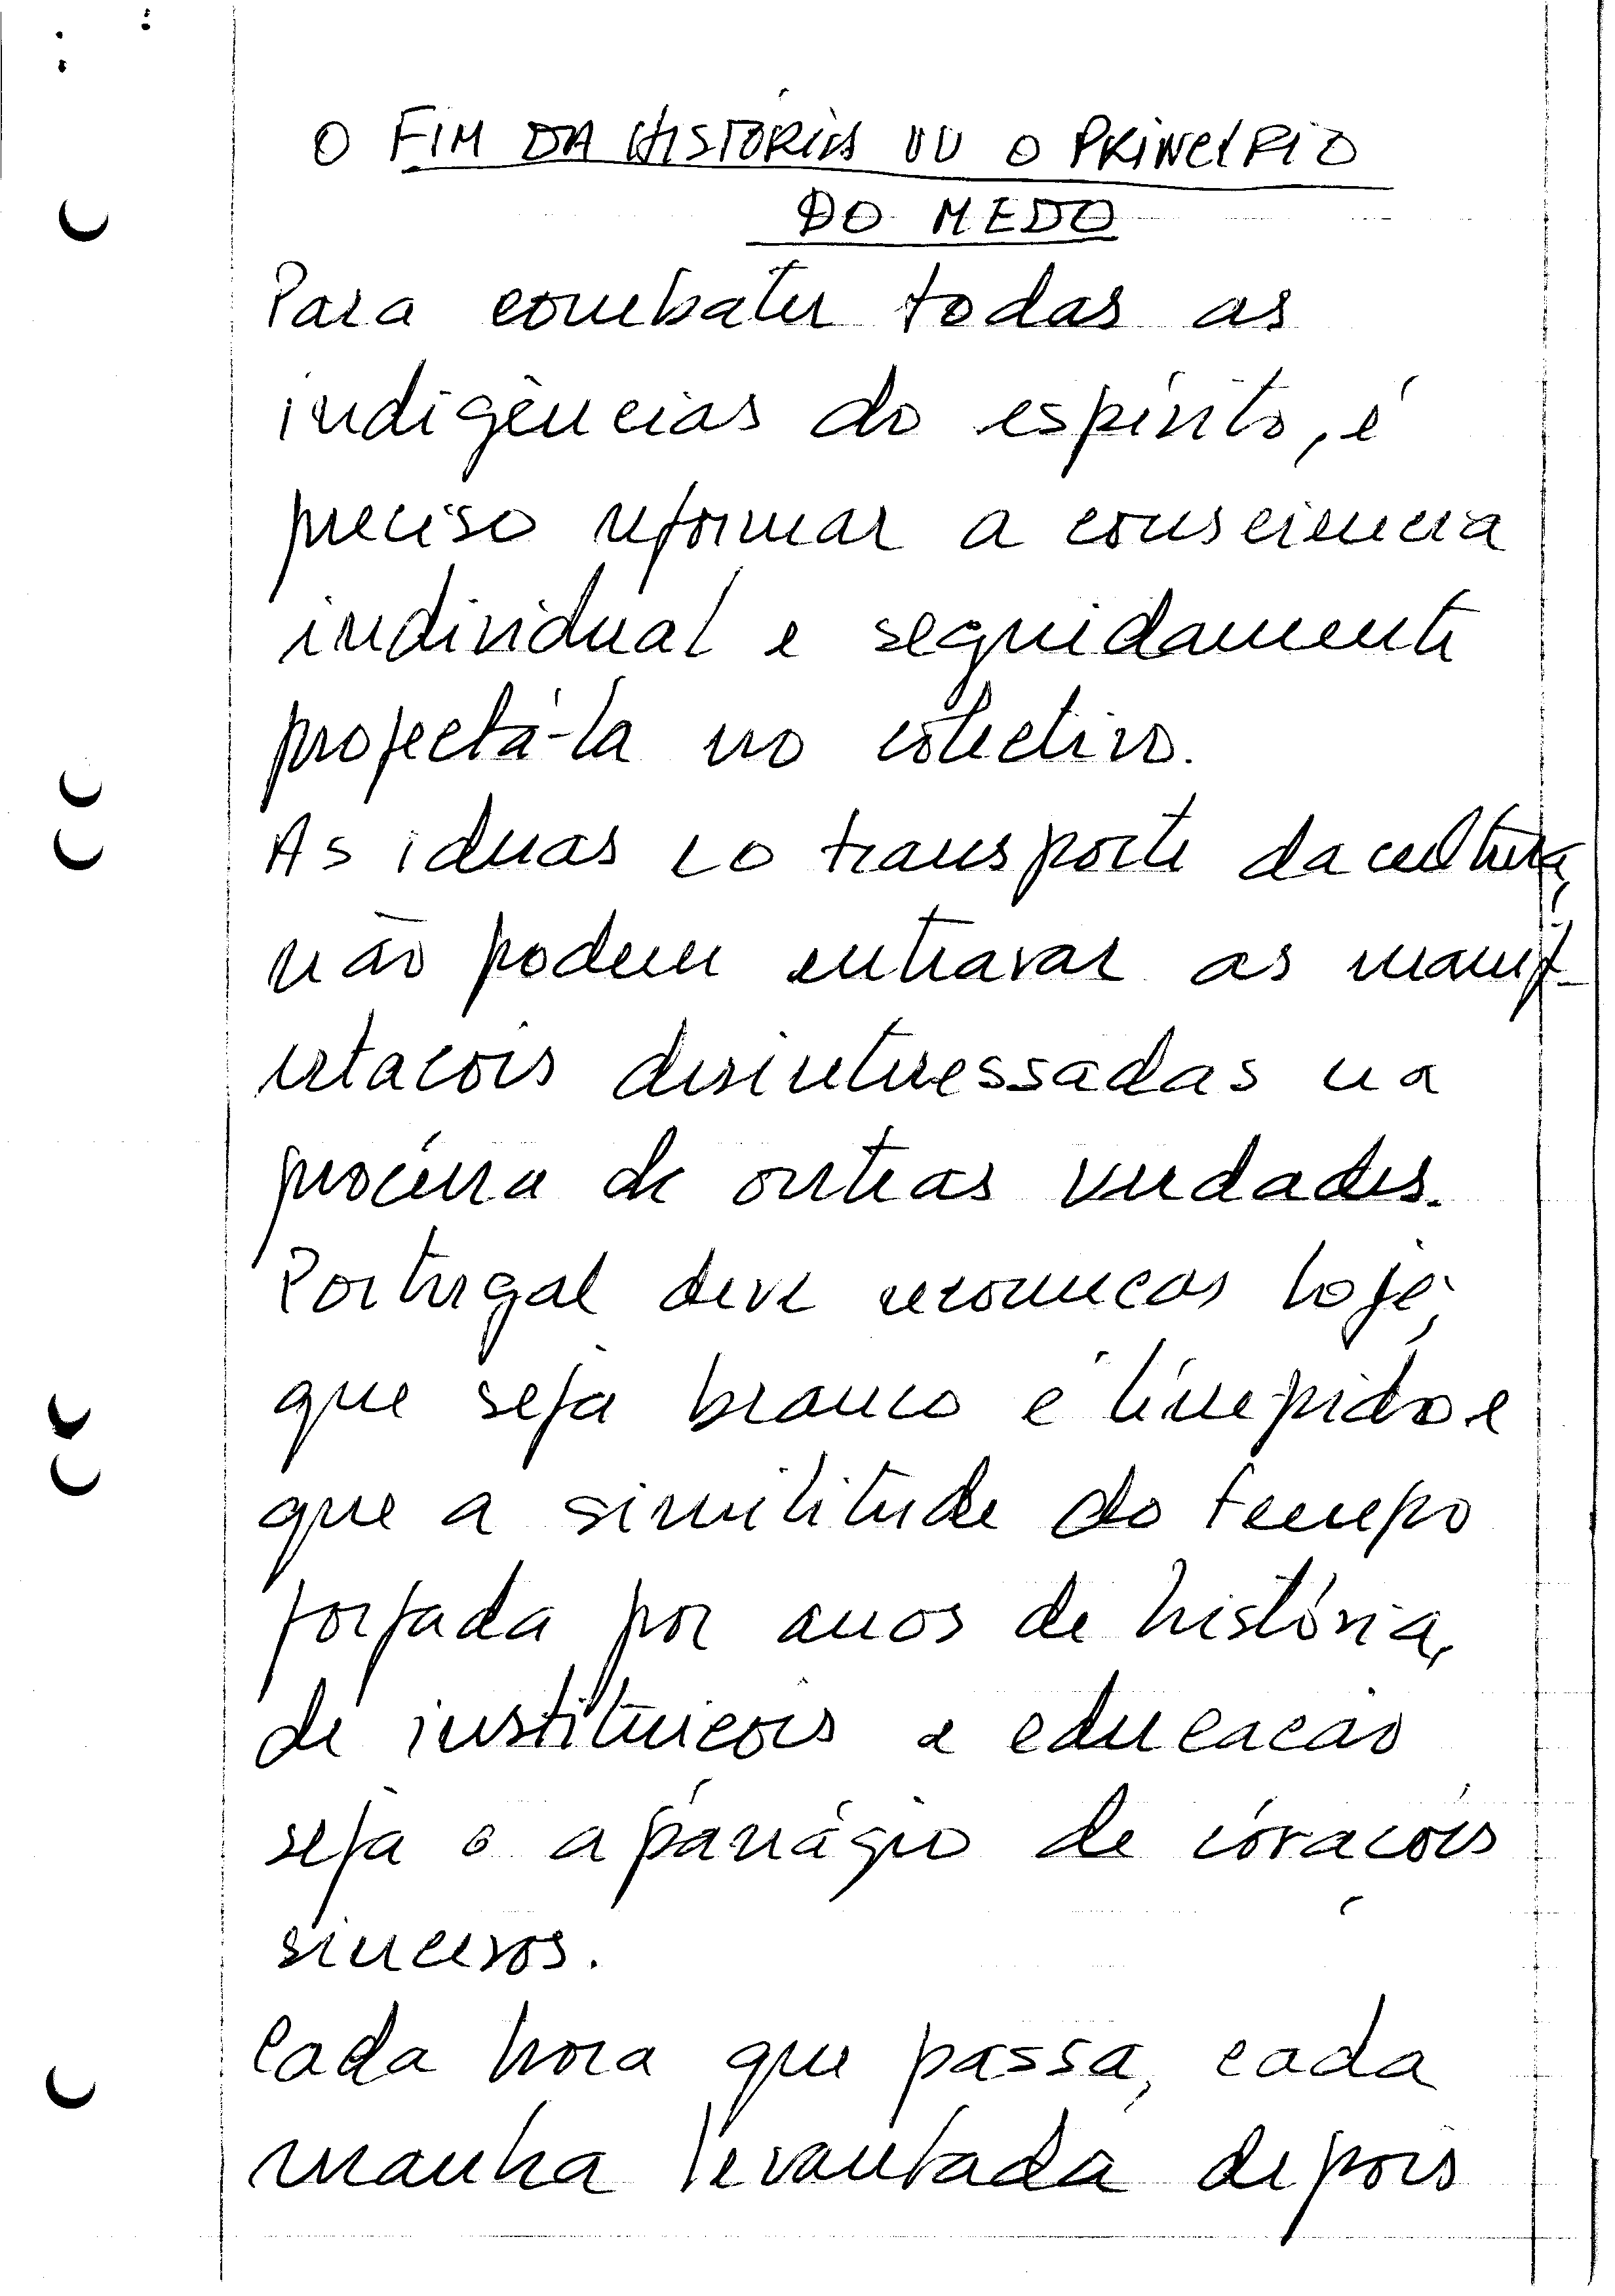 O FIM DA HISTÓRIA OU O PRINCIPIO
DO MEDO
Para combater todas as
indigências do espírito, é
preciso reformar a consciencia
individual e seguidamente
projectá-la no colectivo.
As ideias e o transporte da cultura,
não podem entravar as manif-
estacois desinteressadas na
procúra de outras verdades.
Portugal deve recomecar hoje,
que seja branco e límpido e
que a similitude do tempo
forjada por anos de história,
de instituicois e educacao
seja o apanágio de coracois
sinceros.
Cada hora que passa, cada
manha levantada depois